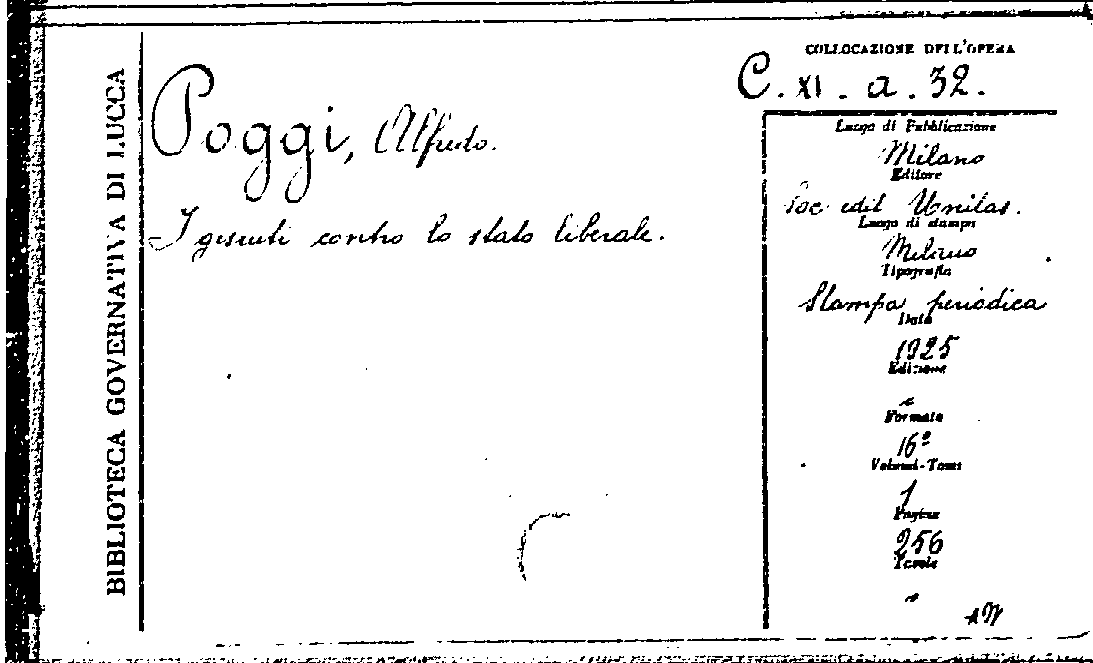 BIBLIOTECA GOVERNATIVA DI LUCCA
Poggi, Alfredo.
I gesuiti contro lo stato liberale.
COLLOCAZIONE DELL'OPERA
C. XI. a. 32.
Luogo di Pubblicazione
Milano
Editore
Soc edit Unitas.
Luogo di stampa
Milano
Tipografia
Stampa periodica
Data
1925
Edizione
Formato
16º
Volumi-Tomi
1
Pagine
256
Tavole